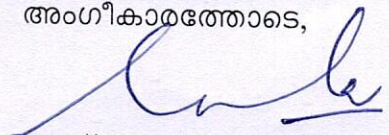 അംഗീകാരത്തോടെ,